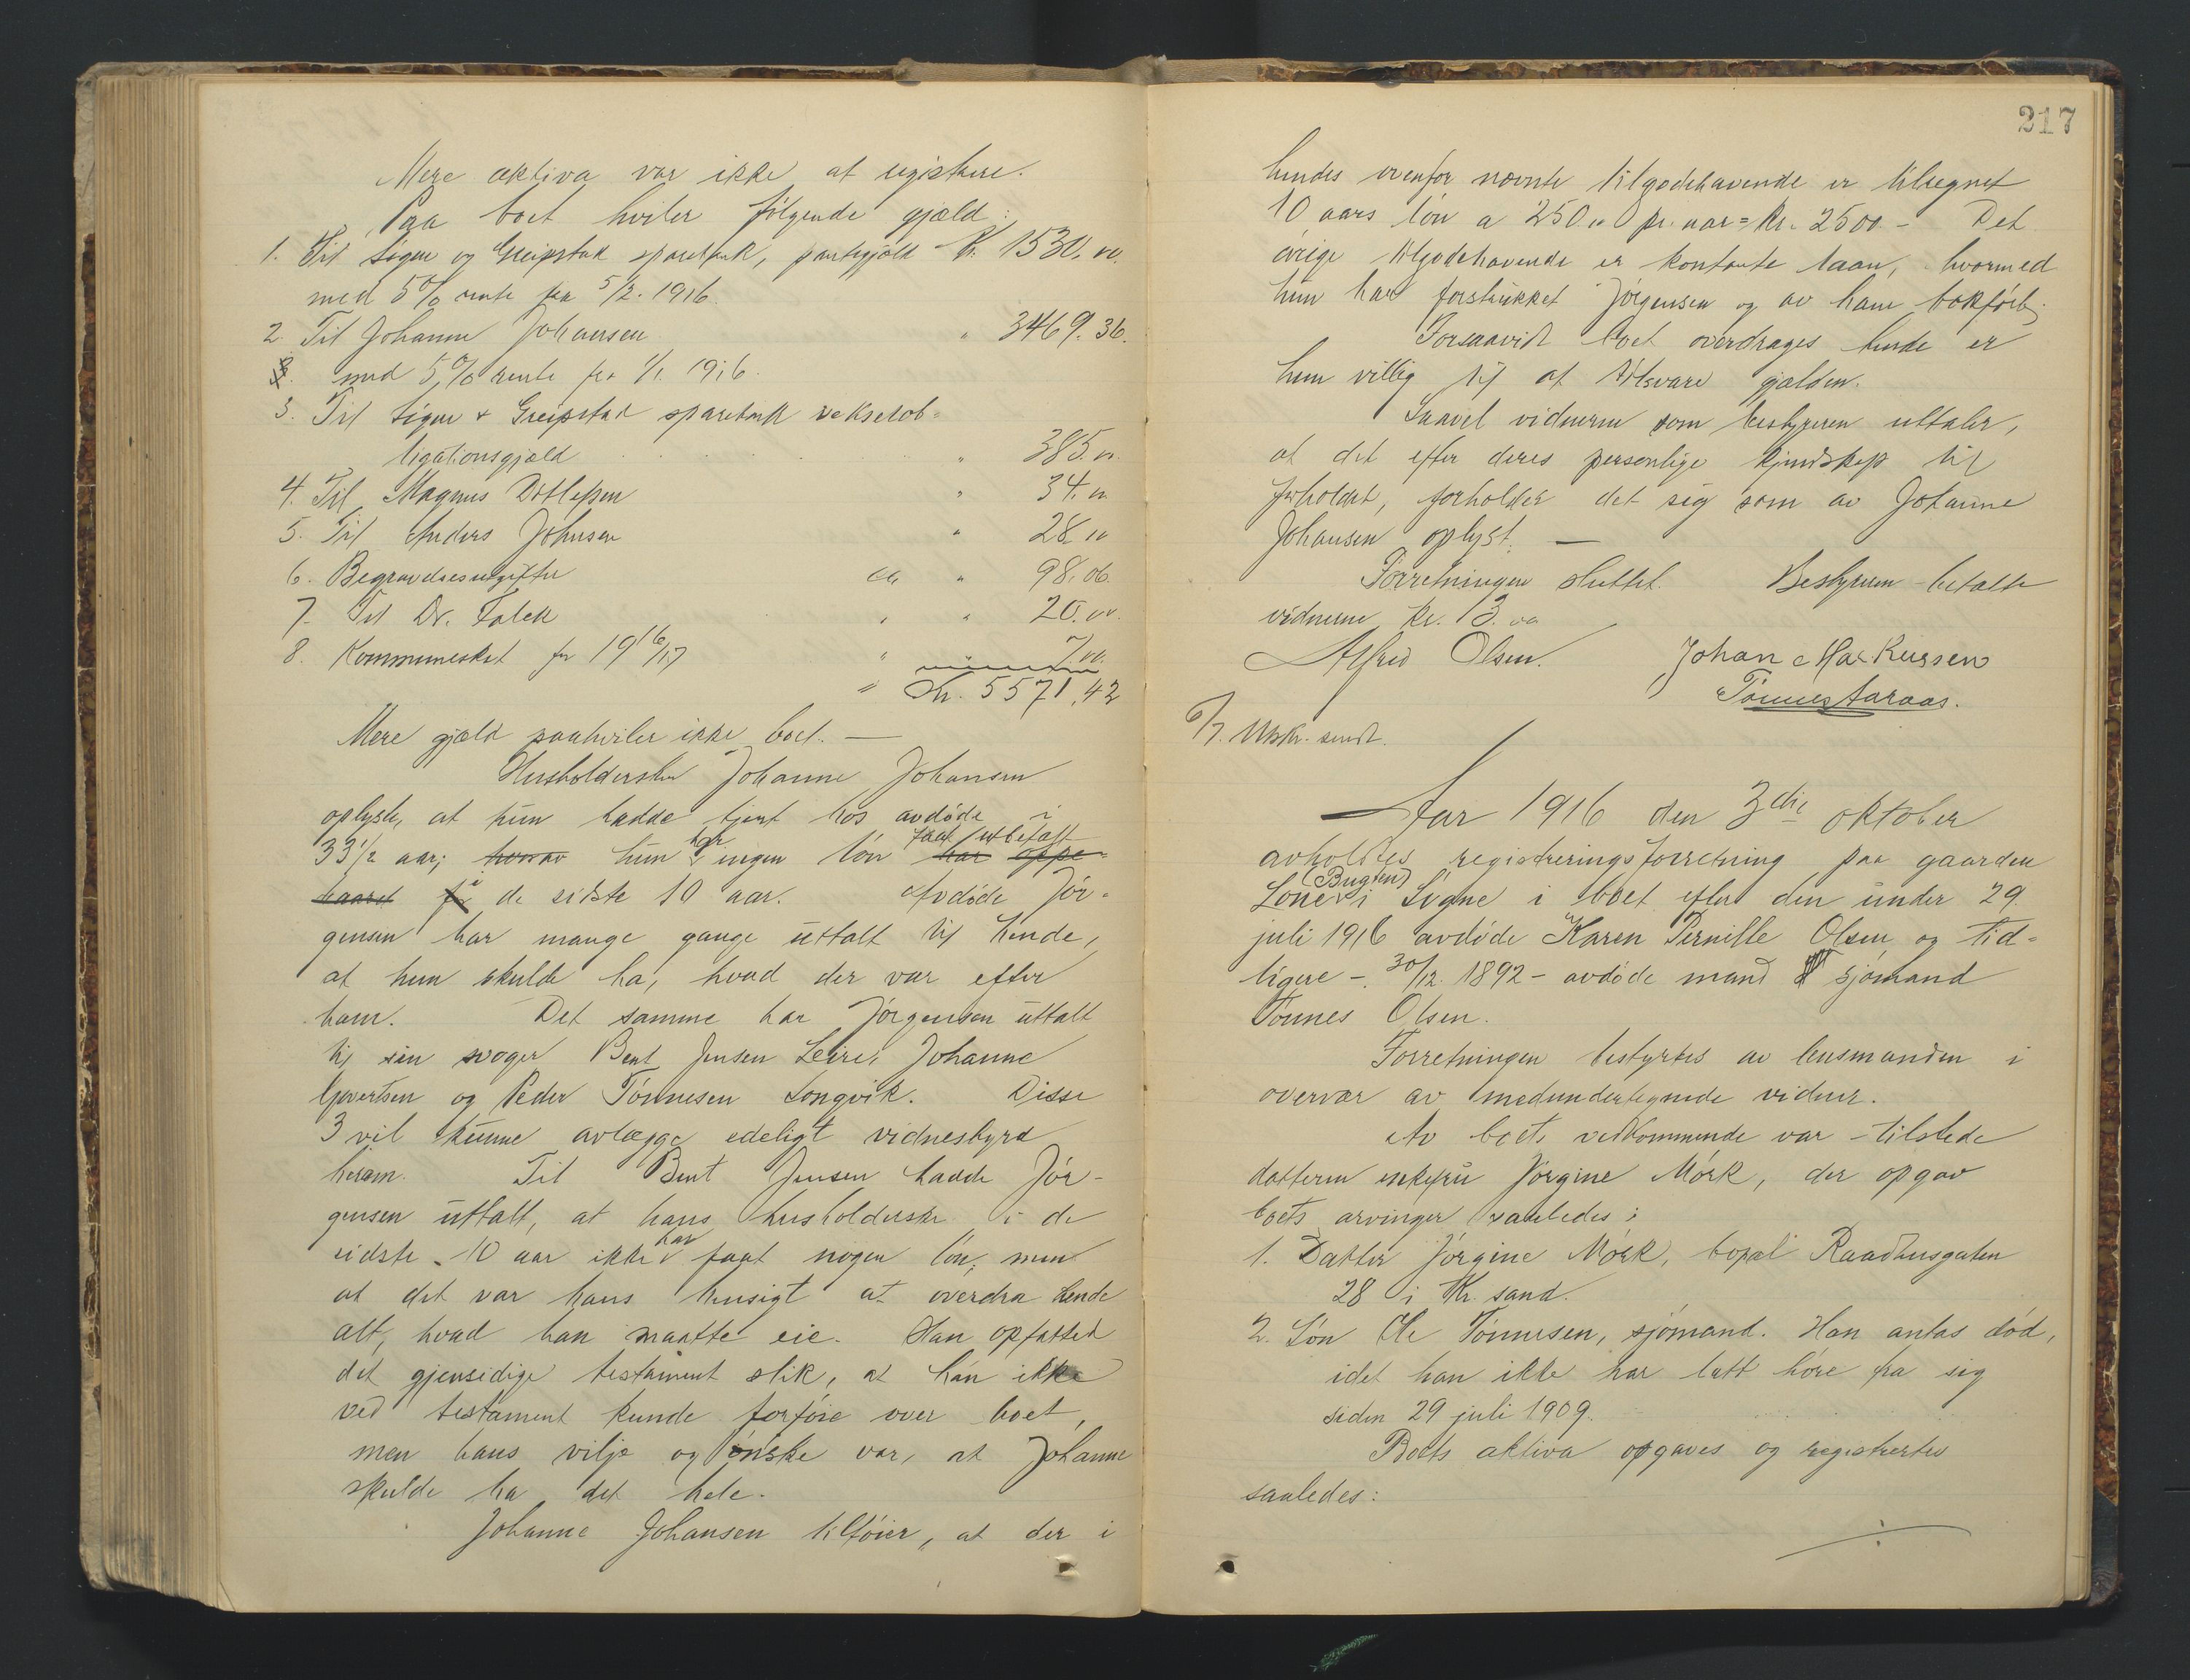 Mere aktiva var ikke at registrere.
Paa boet hviler følgende gjæld:
1. Til Søgne og Greipstad sparebank, pantegjæld Kr. 1530.00.
med 5% rente fra 5/2. 1916.
2. Til Johanne Johansen " 3469.36.
med 5% rente fra 1/1. 1916.
3. Til Søgne & Greipstad sparebank vekselob=
ligationsgjæld " 385.00
4. Til Magnus Ditlefsen " 34.00
5. Til Anders Johnsen " 28.00
6. Begravelsesutgifter ca. " 98.06
7. Til Dr. Falck " " 20.00.
8. Kommuneskat for 1916/17 " 7.00.
" Kr. 5571,42
Mere gjæld paahviler ikke boet. —
Husholderske Johanne Johansen
oplyste, at hun hadde tjent hos avdøde i
33 1/2 aar; hvorav hun har ingen løn faat utbetalt har oppe=
baaret for i de sidste 10 aar. Avdøde Jør=
gensen har mange gange uttalt til hende,
at hun skulde ha, hvad der var efter
ham. Det samme har Jørgensen uttalt
til sin svoger Bent Jensen Leire, Johanne
Govertsen og Peder Tønnesen Songvik. Disse
3 vil kunne avlægge edeligt vidnesbyrd
herom. Til Bent Jensen hadde Jør-
gensen uttalt, at hans husholderske i de
sidste 10 aar ikke har faat nogen løn, men
at det var hans hensigt at overdra hende
alt, hvad han maatte eie. Han opfattet
det gjensidige testament slik, at han ikke
ved testament kunde forføie over boet,
men hans vilje og ønske var, at Johanne
skulde ha det hele.
Johanne Johansen tilføier, at der i
217
hendes ovenfor nævnte tilgodehavende er tilregnet
10 aars løn a 250.00 pr. aar = kr. 2500.- Det
øvrige tilgodehavende er kontante laan, hvormed
hun har forstrukket Jørgensen og av ham bokført.
Forsaavidt boet overdrages hende er
hun villig til at tilsvare gjælden.
Saavel vidnerne som bestyreren uttaler,
at det efter deres personlige kjendskap til
forholdet, forholder det sig som av Johanne
Johansen oplyst. —
Forretningen sluttet. Bestyreren betalte
vidnerne kr. 13.00
Alfred Olsen. Johan Markussen
Tønnes Aaraas.
6/7. Utskr. sendt.
Aar 1916 den 3die oktober
avholdtes registreringsforretning paa gaarden
Lone (Bugten) i Søgne i boet efter den under 29
juli 1916 avdøde Karen Pernille Olsen og tid=
ligere - 30/12. 1892 - avdøde mand sjømand
Tønnes Olsen.
Forretningen bestyrtes av lensmanden i
overvær av medundertegnede vidner.
Av boets vedkommende var tilstede
datteren enkefru Jørgine Mørk, der opgav
boets arvinger saaledes:
1. Datter Jørgine Mørk, bopæl Raadhusgaten
28 i Kr. sand.
2. Søn Ole Tønnesen, sjømand. Han antas død,
idet han ikke har latt høre fra sig
siden 29 juli 1909.
Boets aktiva opgaves og registrertes
saaledes: